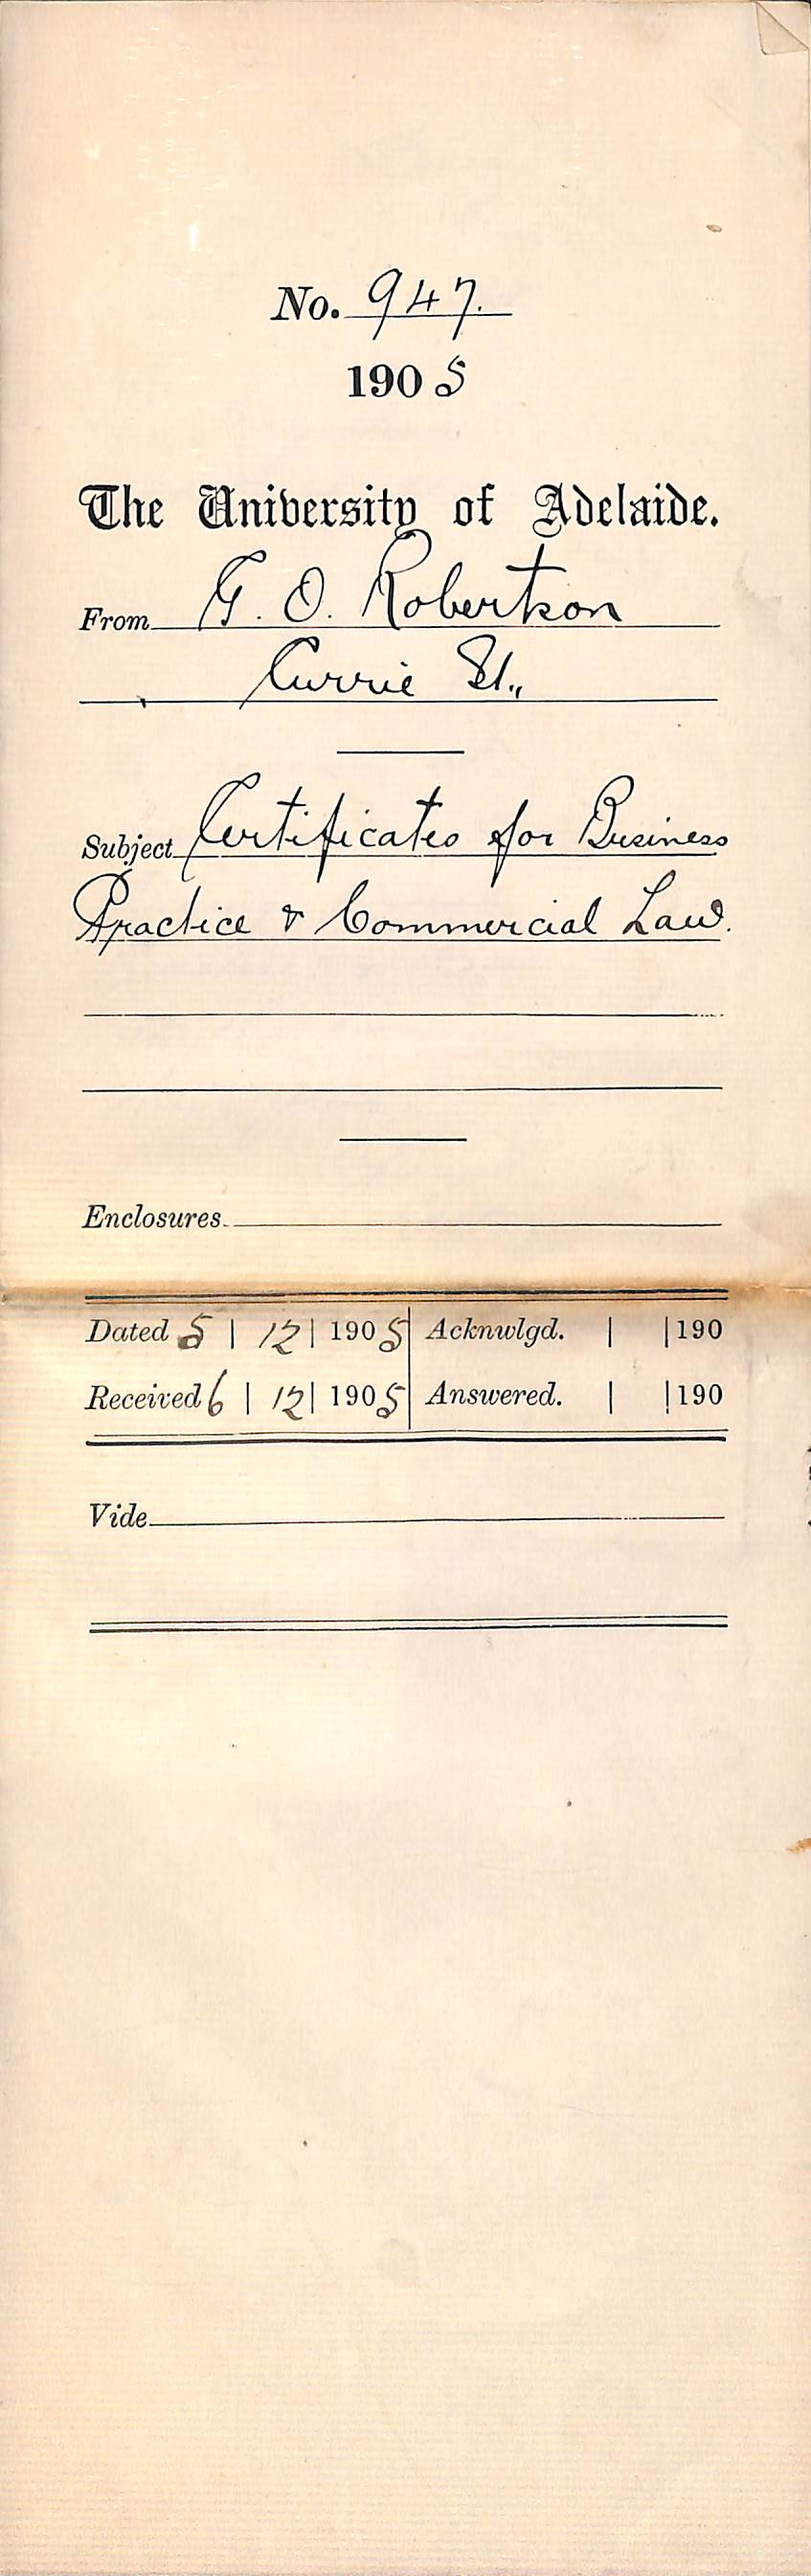 No. 947.
1905
The University of Adelaide.
From G. O. Robertson
Currie St.,
Subject Certificates for Business
Practice & Commercial Law.
Enclosures
Dated 5 | 12 | 1905 Acknwlgd. | | 190
Received 6 | 12 | 1905 Answered. | | 190
Vide